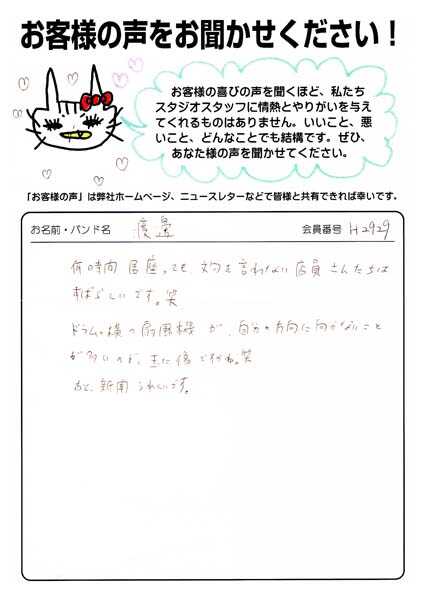 お客様の声をお聞かせください！
お客様の喜びの声を聞くほど、私たち
スタジオスタッフに情熱とやりがいを与え
てくれるものはありません。いいこと、悪
いこと、どんなことでも結構です。ぜひ、
あなた様の声を聞かせてください。
「お客様の声」は弊社ホームページ、ニュースレターなどで皆様と共有できれば幸いです。
お名前・バンド名 会員番号 H2929
何時間 居座っても 文句を言わない 店員さんたちは
すばらしいです。笑
ドラムの横の扇風機が、自分の方向に向かないこと
が多いので、主に
あと、新聞 うれしいです。